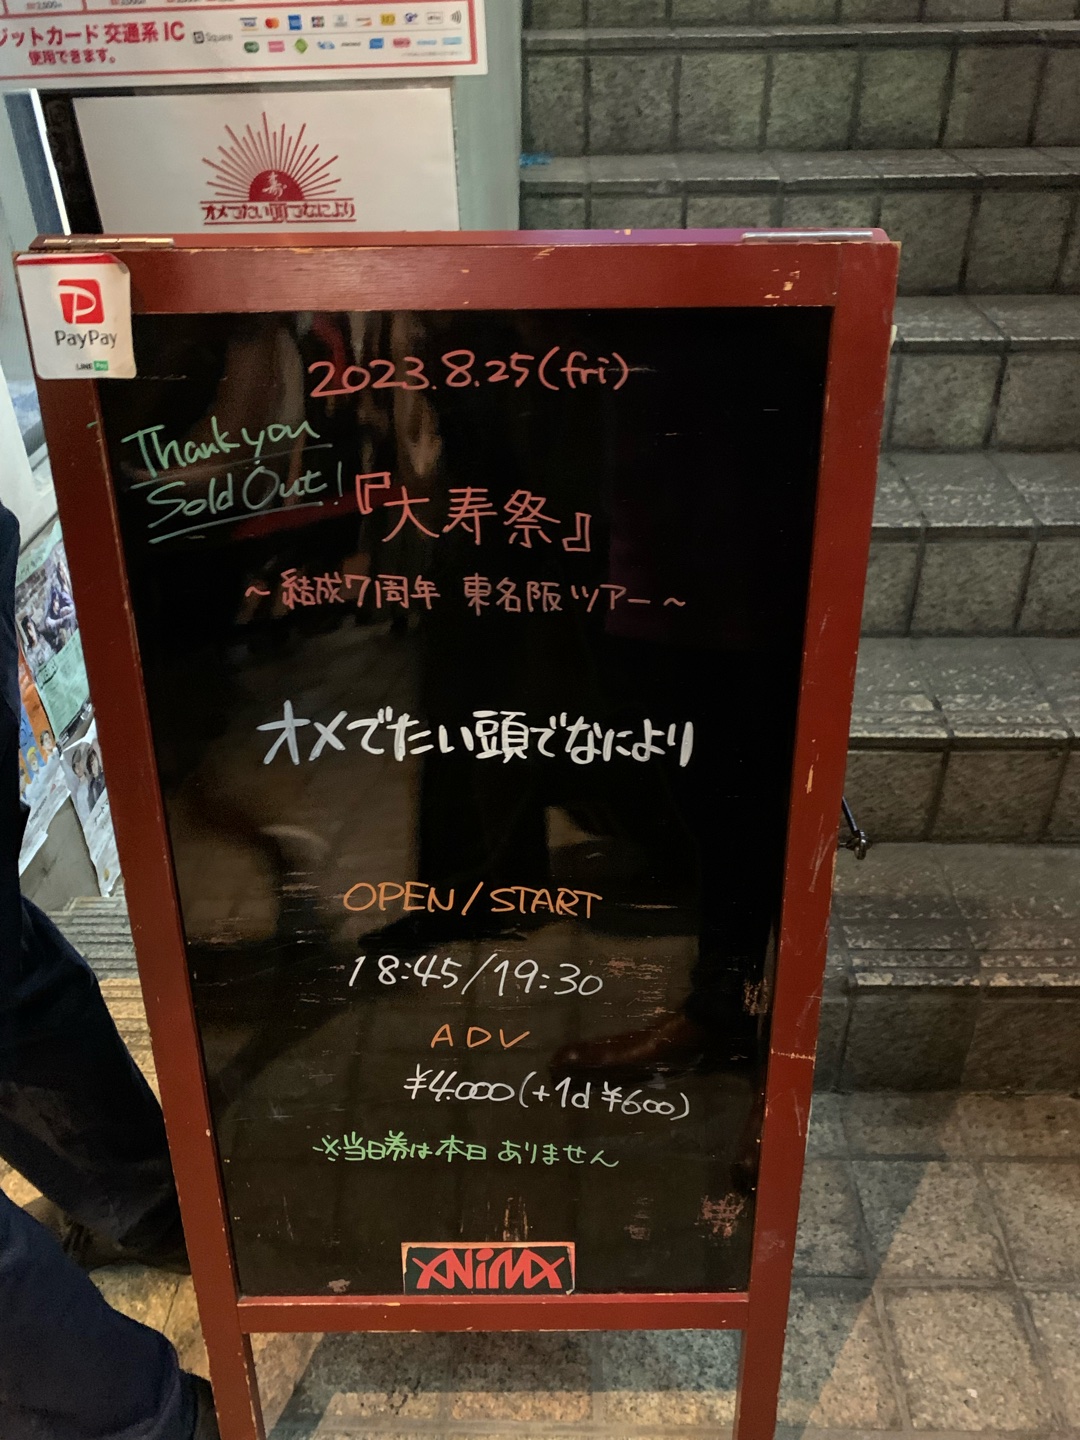 ジットカード 交通系 IC
Square
使用できます。
寿
オメでたい頭でなにより
PayPay
LINE Pay
2023.8.25(fri)
Thank you
Sold Out!
『大寿祭』
~ 結成7周年 東名阪ツアー ~
オメでたい頭でなにより
OPEN/START
18:45/19:30
ADV
¥4.000(+1d ¥600)
※当日券は本日ありません
ANiMA